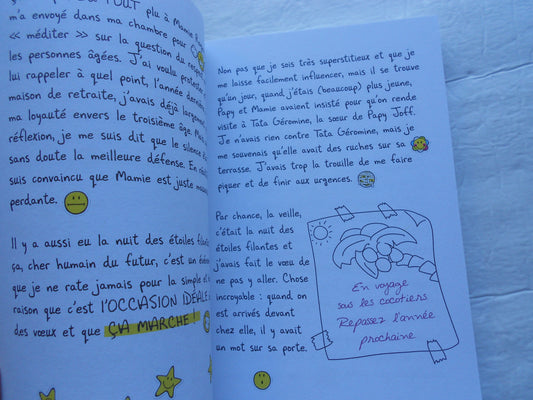 TOUT plu à Mamie
m'a envoyé dans ma chambre pour
« méditer » sur la question du
les personnes âgées. J'ai voulu
lui rappeler à quel point, l'année
maison de retraite, j'avais déjà
ma loyauté envers le troisième âge.
réflexion, je me suis dit que le silence
sans doute la meilleure défense. En
suis convaincu que Mamie est juste
perdante.
Il y a aussi eu la nuit des étoiles
ça, cher humain du futur, c'est un
que je ne rate jamais pour la simple et
raison que c'est l'OCCASION IDÉALE
des vœux et que ÇA MARCHE !
Non pas que je sois très superstitieux et que je
me laisse facilement influencer, mais il se trouve
qu'un jour, quand j'étais (beaucoup) plus jeune,
Papy et Mamie avaient insisté pour qu'on rende
visite à Tata Géromine, la sœur de Papy Joff.
Je n'avais rien contre Tata Géromine, mais je
me souvenais qu'elle avait des ruches sur sa
terrasse. J'avais trop la trouille de me faire
piquer et de finir aux urgences.
Par chance, la veille,
c'était la nuit des
étoiles filantes et
j'avais fait le vœu de
ne pas y aller. Chose
incroyable : quand on
est arrivés devant
chez elle, il y avait
un mot sur sa porte.
En voyage
sous les cocotiers
Repassez l'année
prochaine